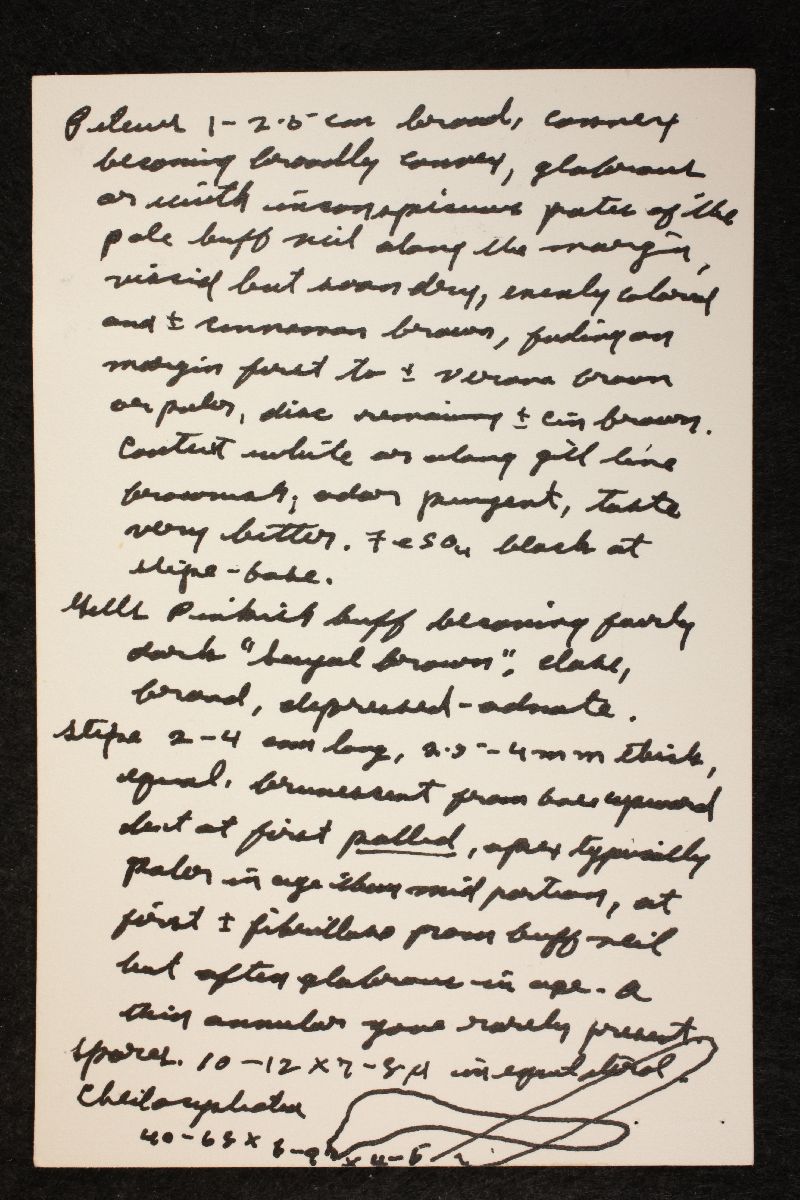 Pileus 1-2.5 cm broad, convex
becoming broadly convex, glabrous
or with inconspicuous patches of the
pale buff veil along the margin,
viscid but soon dry, evenly colored
and ± cinnamon brown, fading on
margin first to ± verona brown
or paler, disc remaining ± cin brown.
Context white or along gill line
brownish; odor pungent, taste
very bitter. FeSO4 black at
stipe-base.
Gills Pinkish buff becoming fairly
dark "sayal brown", close,
broad, depressed-adnate.
Stipe 2-4 cm long, 2.5-4 mm thick,
equal, brunescent from base upward
but at first pallid, apex typically
paler in age than mid portion, at
first ± fibrillose from buff veil
but often glabrous in age. A
thin annular zone rarely present
Spores. 10-12 x 7-8 µ inequilateral.
Cheilocystidia
40-68 x 8-9 x 4-5